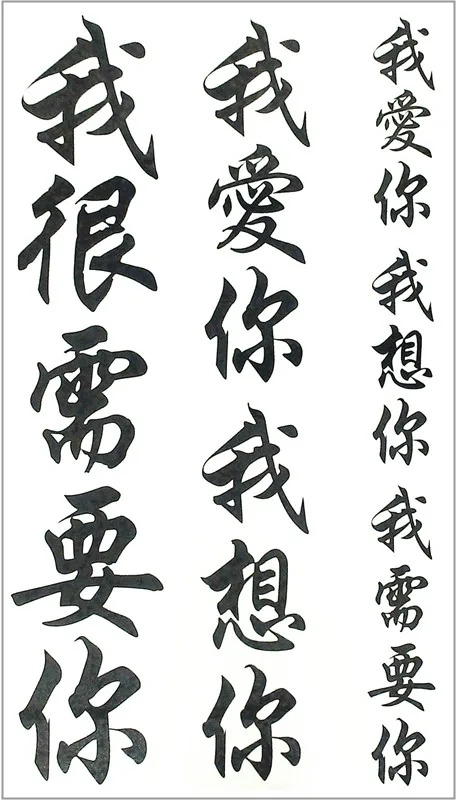 我愛你 我想你 我需要你
我愛你 我想你
我很需要你